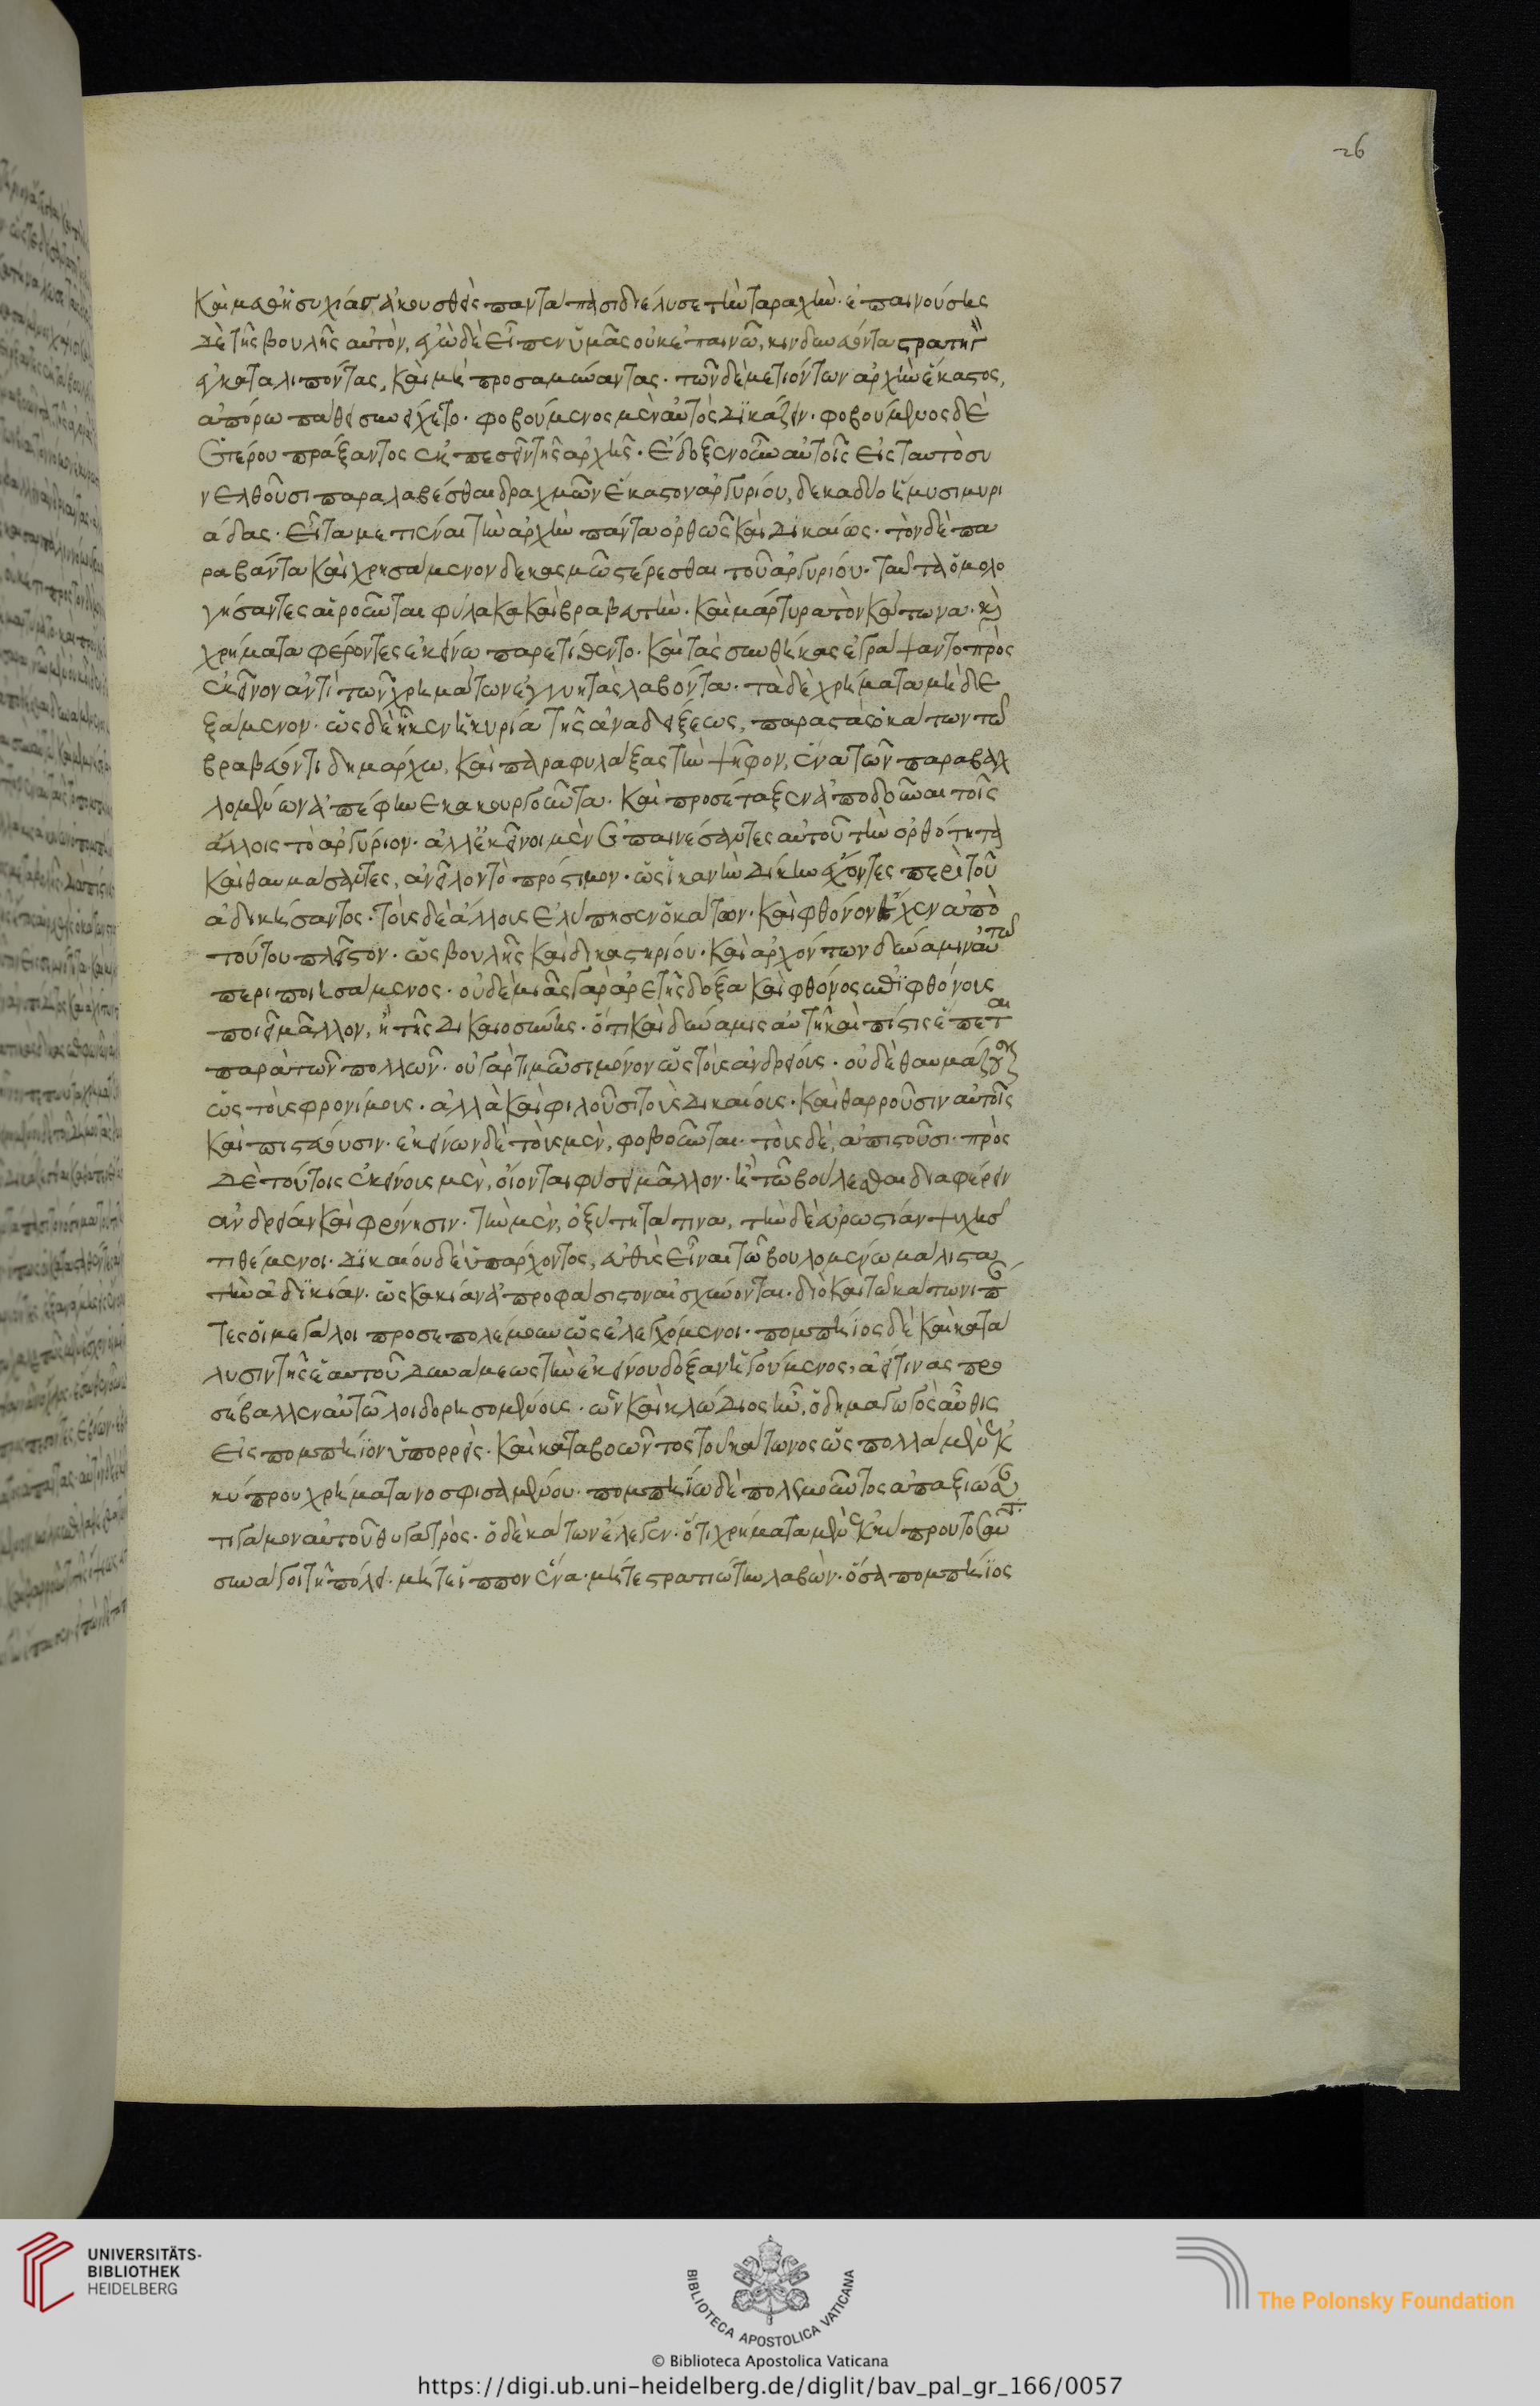 καὶ μεθ ἡσυχίας ἀκουσθεὶς παντάπασι διέλυσε τὴν ταραχήν· ἐπαινούσης
δὲ τῆς βουλῆς αὐτὸν, ἐγὼ δὲ εἶπεν ὑμᾶς οὐκ ἐπαινῶ, κινδυνεύοντα στρατηγ
ἐγκαταλιπόντας, καὶ μὴ προσαμύναντας. τῶν δὲ μετιόντων ἀρχὴν ἕκαστος,
ἀπόρω πάθει συνείχετο· φοβούμενος μὲν αὐτὸς δικάζειν· φοβούμενος δὲ
ἑτέρου πράξαντος ἐκπεσεῖν τῆς ἀρχῆς· ἔδοξεν οὖν αὐτοῖς εἰς ταυτὸ συ
νελθοῦσι παραλαβέσθαι δραχμῶν ἕκαστον ἀργυρίου, δεκαδύο ἥμυσι μυρι
άδας· εἶτα μετιέναι τὴν ἀρχὴν πάντα ὀρθῶς καὶ δικαίως· τὸν δὲ πα
ραβάντα καὶ χρησάμενον δεκασμῶ στέρεσθαι τοῦ ἀργυρίου· ταῦτα ὁμολο
γήσαντες αἱροῦνται φύλακα καὶ βραβευτὴν· καὶ μάρτυρα τὸν κάτωνα· καὶ
χρήματα φέροντες ἐκείνω παρετίθεντο· καὶ τὰς συνθήκας ἐγράψαντο πρὸς
ἐκεῖνον ἀντὶ τῶν χρημάτων ἐγγυητὰς λαβόντα· τὰ δὲ χρήματα μὴ δε
ξάμενον· ὡς δὲ ἧκεν ἡ κυρία τῆς ἀναδείξεως, παραστὰς ὁ κάτων τῶ
βραβεύοντι δημάρχω, καὶ παραφυλάξας τὴν ψῆφον, ἕνα τῶν παραβαλ
λομένων ἀπέφηνε κακουργοῦντα· καὶ προσέταξεν ἀποδοῦναι τοῖς
ἄλλοις τὸ ἀργύριον· ἀλλ ἐκεῖνοι μὲν ἐπαινέσαντες αὐτοῦ τὴν ὀρθότητα
καὶ θαυμάσαντες, ἀνεῖλον τὸ πρόστιμον· ὡς ἱκανὴν δίκην ἔχοντες περὶ τοῦ
ἀδικήσαντος· τοὺς δὲ ἄλλους ἐλύπησεν ὁ κάτων· καὶ φθόνον ἔσχεν ἀπὸ
τούτου πλεῖστον· ὡς βουλῆς καὶ δικαστηρίου· καὶ ἀρχόντων δύναμιν αὑτῶ
περιποιησάμενος· οὐδεμιᾶς γὰρ ἀρετῆς δόξα καὶ φθόνος ἐπιφθόνους
ποιεῖ μᾶλλον, ἢ τῆς δικαιοσύνης· ὅτι καὶ δύναμις αὐτῆ καὶ πίστις ἕπεται
παρὰ τῶν πολλῶν· οὐ γὰρ τιμῶσι μόνον ὡς τοὺς ἀνδρείους· οὐδὲ θαυμάζουσιν
ὡς τοὺς φρονίμους· ἀλλὰ καὶ φιλοῦσι τοὺς δικαίους· καὶ θαρροῦσιν αὐτοῖς
καὶ πιστεύουσιν· ἐκείνων δὲ τοὺς μὲν, φοβοῦνται· τοῖς δὲ, ἀπιστοῦσι· πρὸς
δὲ τούτοις ἐκείνους μὲν, οἴονται φύσει μᾶλλον· ἢ τῶ βούλεσθαι διαφέρειν
ἀνδρείαν καὶ φρόνησιν· τὴν μὲν, ὀξύτητά τινα, τὴν δὲ εὐρωστίαν ψυχῆς
τιθέμενοι· δικαίου δὲ ὑπάρχοντος, εὐθὺς εἶναι τῶ βουλομένω μάλιστα
τὴν ἀδικίαν· ὡς κακίαν ἀπροφάσιστον αἰσχύνονται· διὸ καὶ τῶ κάτωνι πάν
τες οἱ μεγάλοι προσεπολέμουν ὡς ἐλεγχόμενοι· πομπήϊος δὲ καὶ κατά
λυσιν τῆς ἑαυτοῦ δυνάμεως τὴν ἐκείνου δόξαν ἡγούμενος, ἀεί τινας προ
σέβαλλεν αὐτῶ λοιδορησομένους· ὧν καὶ κλώδιος ἦν, ὁ δημαγωγὸς αὖθις
εἰς πομπήϊον ὑπορρυεὶς· καὶ καταβοῶντος τοῦ κάτωνος ὡς πολλὰ μὲν ἐκ
κύπρου χρήματα νοσφισαμένου· πομπηΐω δὲ πολεμοῦντος ἀπαξιώσαν
τι γάμον αὐτοῦ θυγατρὸς· ὁ δὲ κάτων ἔλεγεν· ὅτι χρήματα μὲν ἐκ κύπρου τοσαῦτ
συναγάγοι τῆ πόλει· μήτε ἵππον ἕνα· μήτε στρατιώτην λαβὼν· ὅσα πομπήϊος
26
UNIVERSITÄTS-
BIBLIOTHEK
HEIDELBERG
BIBLIOTECA APOSTOLICA VATICANA
The Polonsky Foundation
© Biblioteca Apostolica Vaticana
https://digi.ub.uni-heidelberg.de/diglit/bav_pal_gr_166/0057